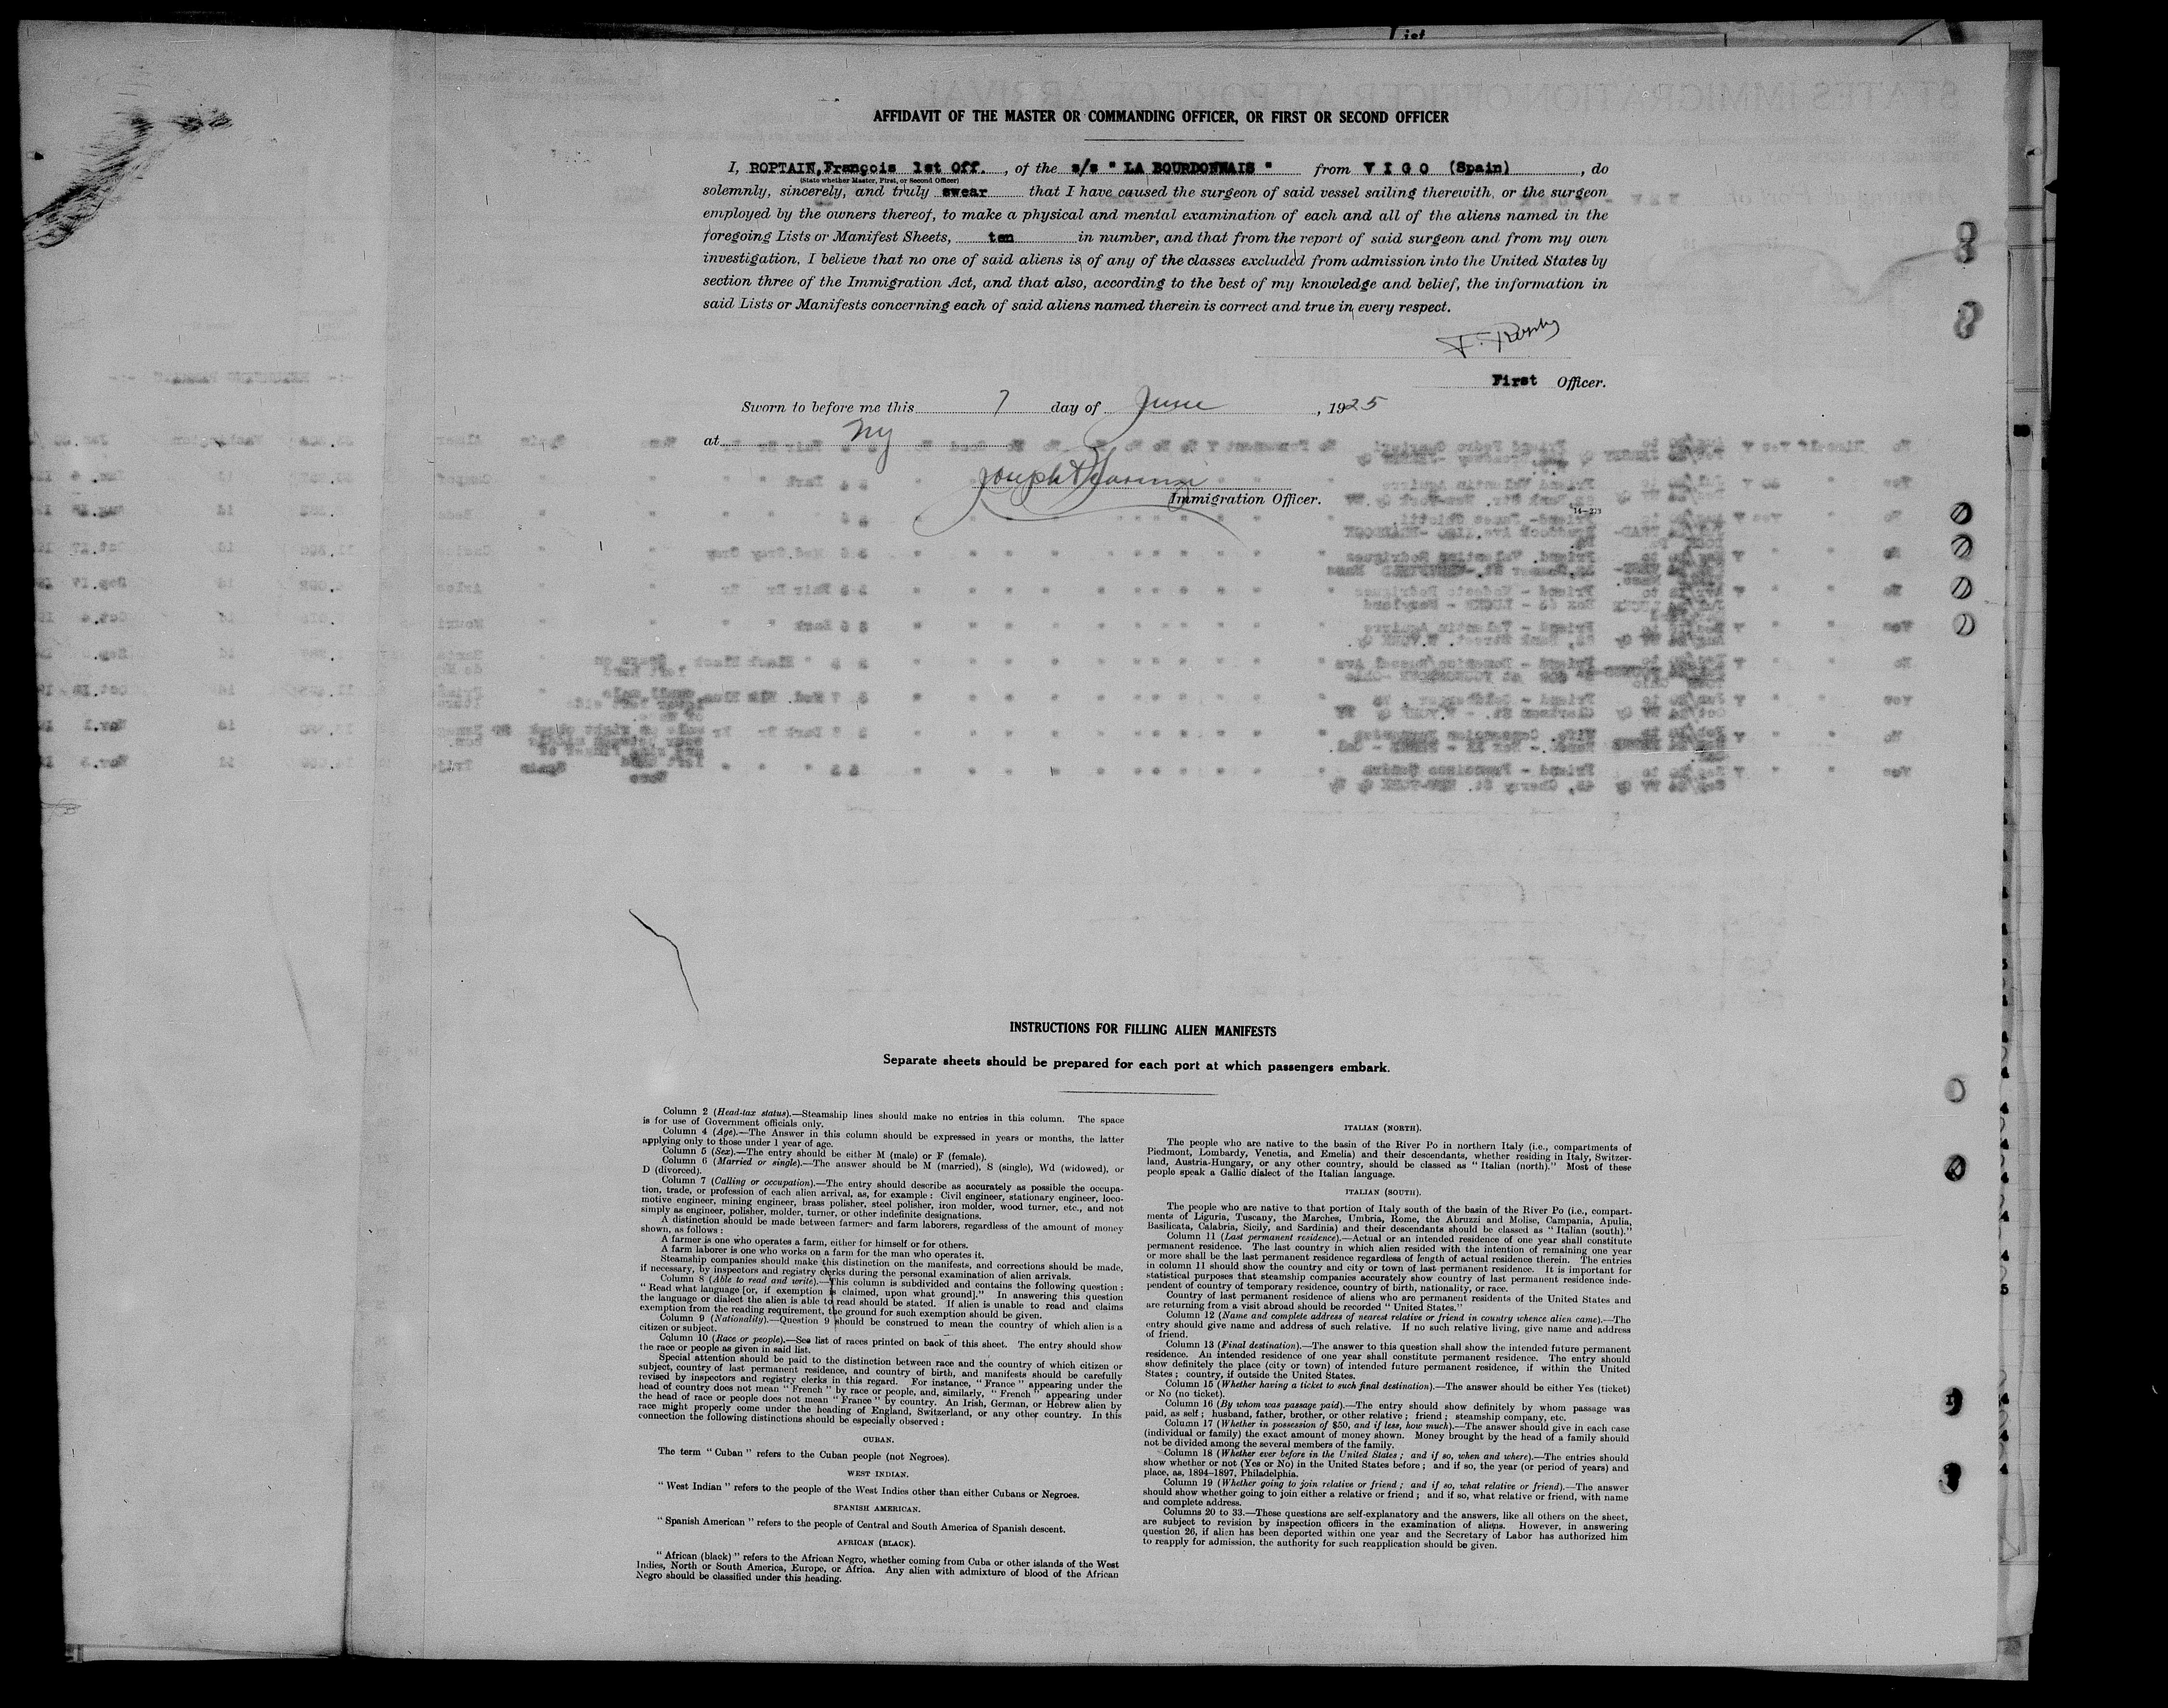 AFFIDAVIT OF THE MASTER OR COMMANDING OFFICER, OR FIRST OR SECOND OFFICER
I, ROPTAIN, François 1st Off. , of the s/s " LA BOURDONNAIS " from V I G O (Spain) , do
(State whether Master, First, or Second Officer)
solemnly, sincerely, and truly swear that I have caused the surgeon of said vessel sailing therewith, or the surgeon
employed by the owners thereof, to make a physical and mental examination of each and all of the aliens named in the
foregoing Lists or Manifest Sheets, ten in number, and that from the report of said surgeon and from my own
investigation, I believe that no one of said aliens is of any of the classes excluded from admission into the United States by
section three of the Immigration Act, and that also, according to the best of my knowledge and belief, the information in
said Lists or Manifests concerning each of said aliens named therein is correct and true in every respect.
First Officer.
Sworn to before me this 7 day of June , 1925
at NY
Immigration Officer.
14—223
INSTRUCTIONS FOR FILLING ALIEN MANIFESTS
Separate sheets should be prepared for each port at which passengers embark.
Column 2 (Head-tax status).—Steamship lines should make no entries in this column. The space
is for use of Government officials only.
Column 4 (Age).—The Answer in this column should be expressed in years or months, the latter
applying only to those under 1 year of age.
Column 5 (Sex).—The entry should be either M (male) or F (female).
Column 6 (Married or single).—The answer should be M (married), S (single), Wd (widowed), or
D (divorced).
Column 7 (Calling or occupation).—The entry should describe as accurately as possible the occupa-
tion, trade, or profession of each alien arrival, as, for example : Civil engineer, stationary engineer, loco-
motive engineer, mining engineer, brass polisher, steel polisher, iron molder, wood turner, etc., and not
simply as engineer, polisher, molder, turner, or other indefinite designations.
A distinction should be made between farmers and farm laborers, regardless of the amount of money
shown, as follows :
A farmer is one who operates a farm, either for himself or for others.
A farm laborer is one who works on a farm for the man who operates it.
Steamship companies should make this distinction on the manifests, and corrections should be made,
if necessary, by inspectors and registry clerks during the personal examination of alien arrivals.
Column 8 (Able to read and write).—This column is subdivided and contains the following question :
" Read what language [or, if exemption is claimed, upon what ground]." In answering this question
the language or dialect the alien is able to read should be stated. If alien is unable to read and claims
exemption from the reading requirement, the ground for such exemption should be given.
Column 9 (Nationality).—Question 9 should be construed to mean the country of which alien is a
citizen or subject.
Column 10 (Race or people).—See list of races printed on back of this sheet. The entry should show
the race or people as given in said list.
Special attention should be paid to the distinction between race and the country of which citizen or
subject, country of last permanent residence, and country of birth, and manifests should be carefully
revised by inspectors and registry clerks in this regard. For instance, " France " appearing under the
head of country does not mean " French " by race or people, and, similarly, " French " appearing under
the head of race or people does not mean " France " by country. An Irish, German, or Hebrew alien by
race might properly come under the heading of England, Switzerland, or any other country. In this
connection the following distinctions should be especially observed :
CUBAN.
The term " Cuban " refers to the Cuban people (not Negroes).
WEST INDIAN.
" West Indian " refers to the people of the West Indies other than either Cubans or Negroes.
SPANISH AMERICAN.
" Spanish American " refers to the people of Central and South America of Spanish descent.
AFRICAN (BLACK).
" African (black) " refers to the African Negro, whether coming from Cuba or other islands of the West
Indies, North or South America, Europe, or Africa. Any alien with admixture of blood of the African
Negro should be classified under this heading.
ITALIAN (NORTH).
The people who are native to the basin of the River Po in northern Italy (i.e., compartments of
Piedmont, Lombardy, Venetia, and Emelia) and their descendants, whether residing in Italy, Switzer-
land, Austria-Hungary, or any other country, should be classed as " Italian (north)." Most of these
people speak a Gallic dialect of the Italian language.
ITALIAN (SOUTH).
The people who are native to that portion of Italy south of the basin of the River Po (i.e., compart-
ments of Liguria, Tuscany, the Marches, Umbria, Rome, the Abruzzi and Molise, Campania, Apulia,
Basilicata, Calabria, Sicily, and Sardinia) and their descendants should be classed as " Italian (south)."
Column 11 (Last permanent residence).—Actual or an intended residence of one year shall constitute
permanent residence. The last country in which alien resided with the intention of remaining one year
or more shall be the last permanent residence regardless of length of actual residence therein. The entries
in column 11 should show the country and city or town of last permanent residence. It is important for
statistical purposes that steamship companies accurately show country of last permanent residence inde-
pendent of country of temporary residence, country of birth, nationality, or race.
Country of last permanent residence of aliens who are permanent residents of the United States and
are returning from a visit abroad should be recorded " United States."
Column 12 (Name and complete address of nearest relative or friend in country whence alien came).—The
entry should give name and address of such relative. If no such relative living, give name and address
of friend.
Column 13 (Final destination).—The answer to this question shall show the intended future permanent
residence. An intended residence of one year shall constitute permanent residence. The entry should
show definitely the place (city or town) of intended future permanent residence, if within the United
States ; country, if outside the United States.
Column 15 (Whether having a ticket to such final destination).—The answer should be either Yes (ticket)
or No (no ticket).
Column 16 (By whom was passage paid).—The entry should show definitely by whom passage was
paid, as self ; husband, father, brother, or other relative ; friend ; steamship company, etc.
Column 17 (Whether in possession of $50, and if less, how much).—The answer should give in each case
(individual or family) the exact amount of money shown. Money brought by the head of a family should
not be divided among the several members of the family.
Column 18 (Whether ever before in the United States ; and if so, when and where).—The entries should
show whether or not (Yes or No) in the United States before ; and if so, the year (or period of years) and
place, as, 1894–1897, Philadelphia.
Column 19 (Whether going to join relative or friend ; and if so, what relative or friend).—The answer
should show whether going to join either a relative or friend ; and if so, what relative or friend, with name
and complete address.
Columns 20 to 33.—These questions are self-explanatory and the answers, like all others on the sheet,
are subject to revision by inspection officers in the examination of aliens. However, in answering
question 26, if alien has been deported within one year and the Secretary of Labor has authorized him
to reapply for admission, the authority for such reapplication should be given.